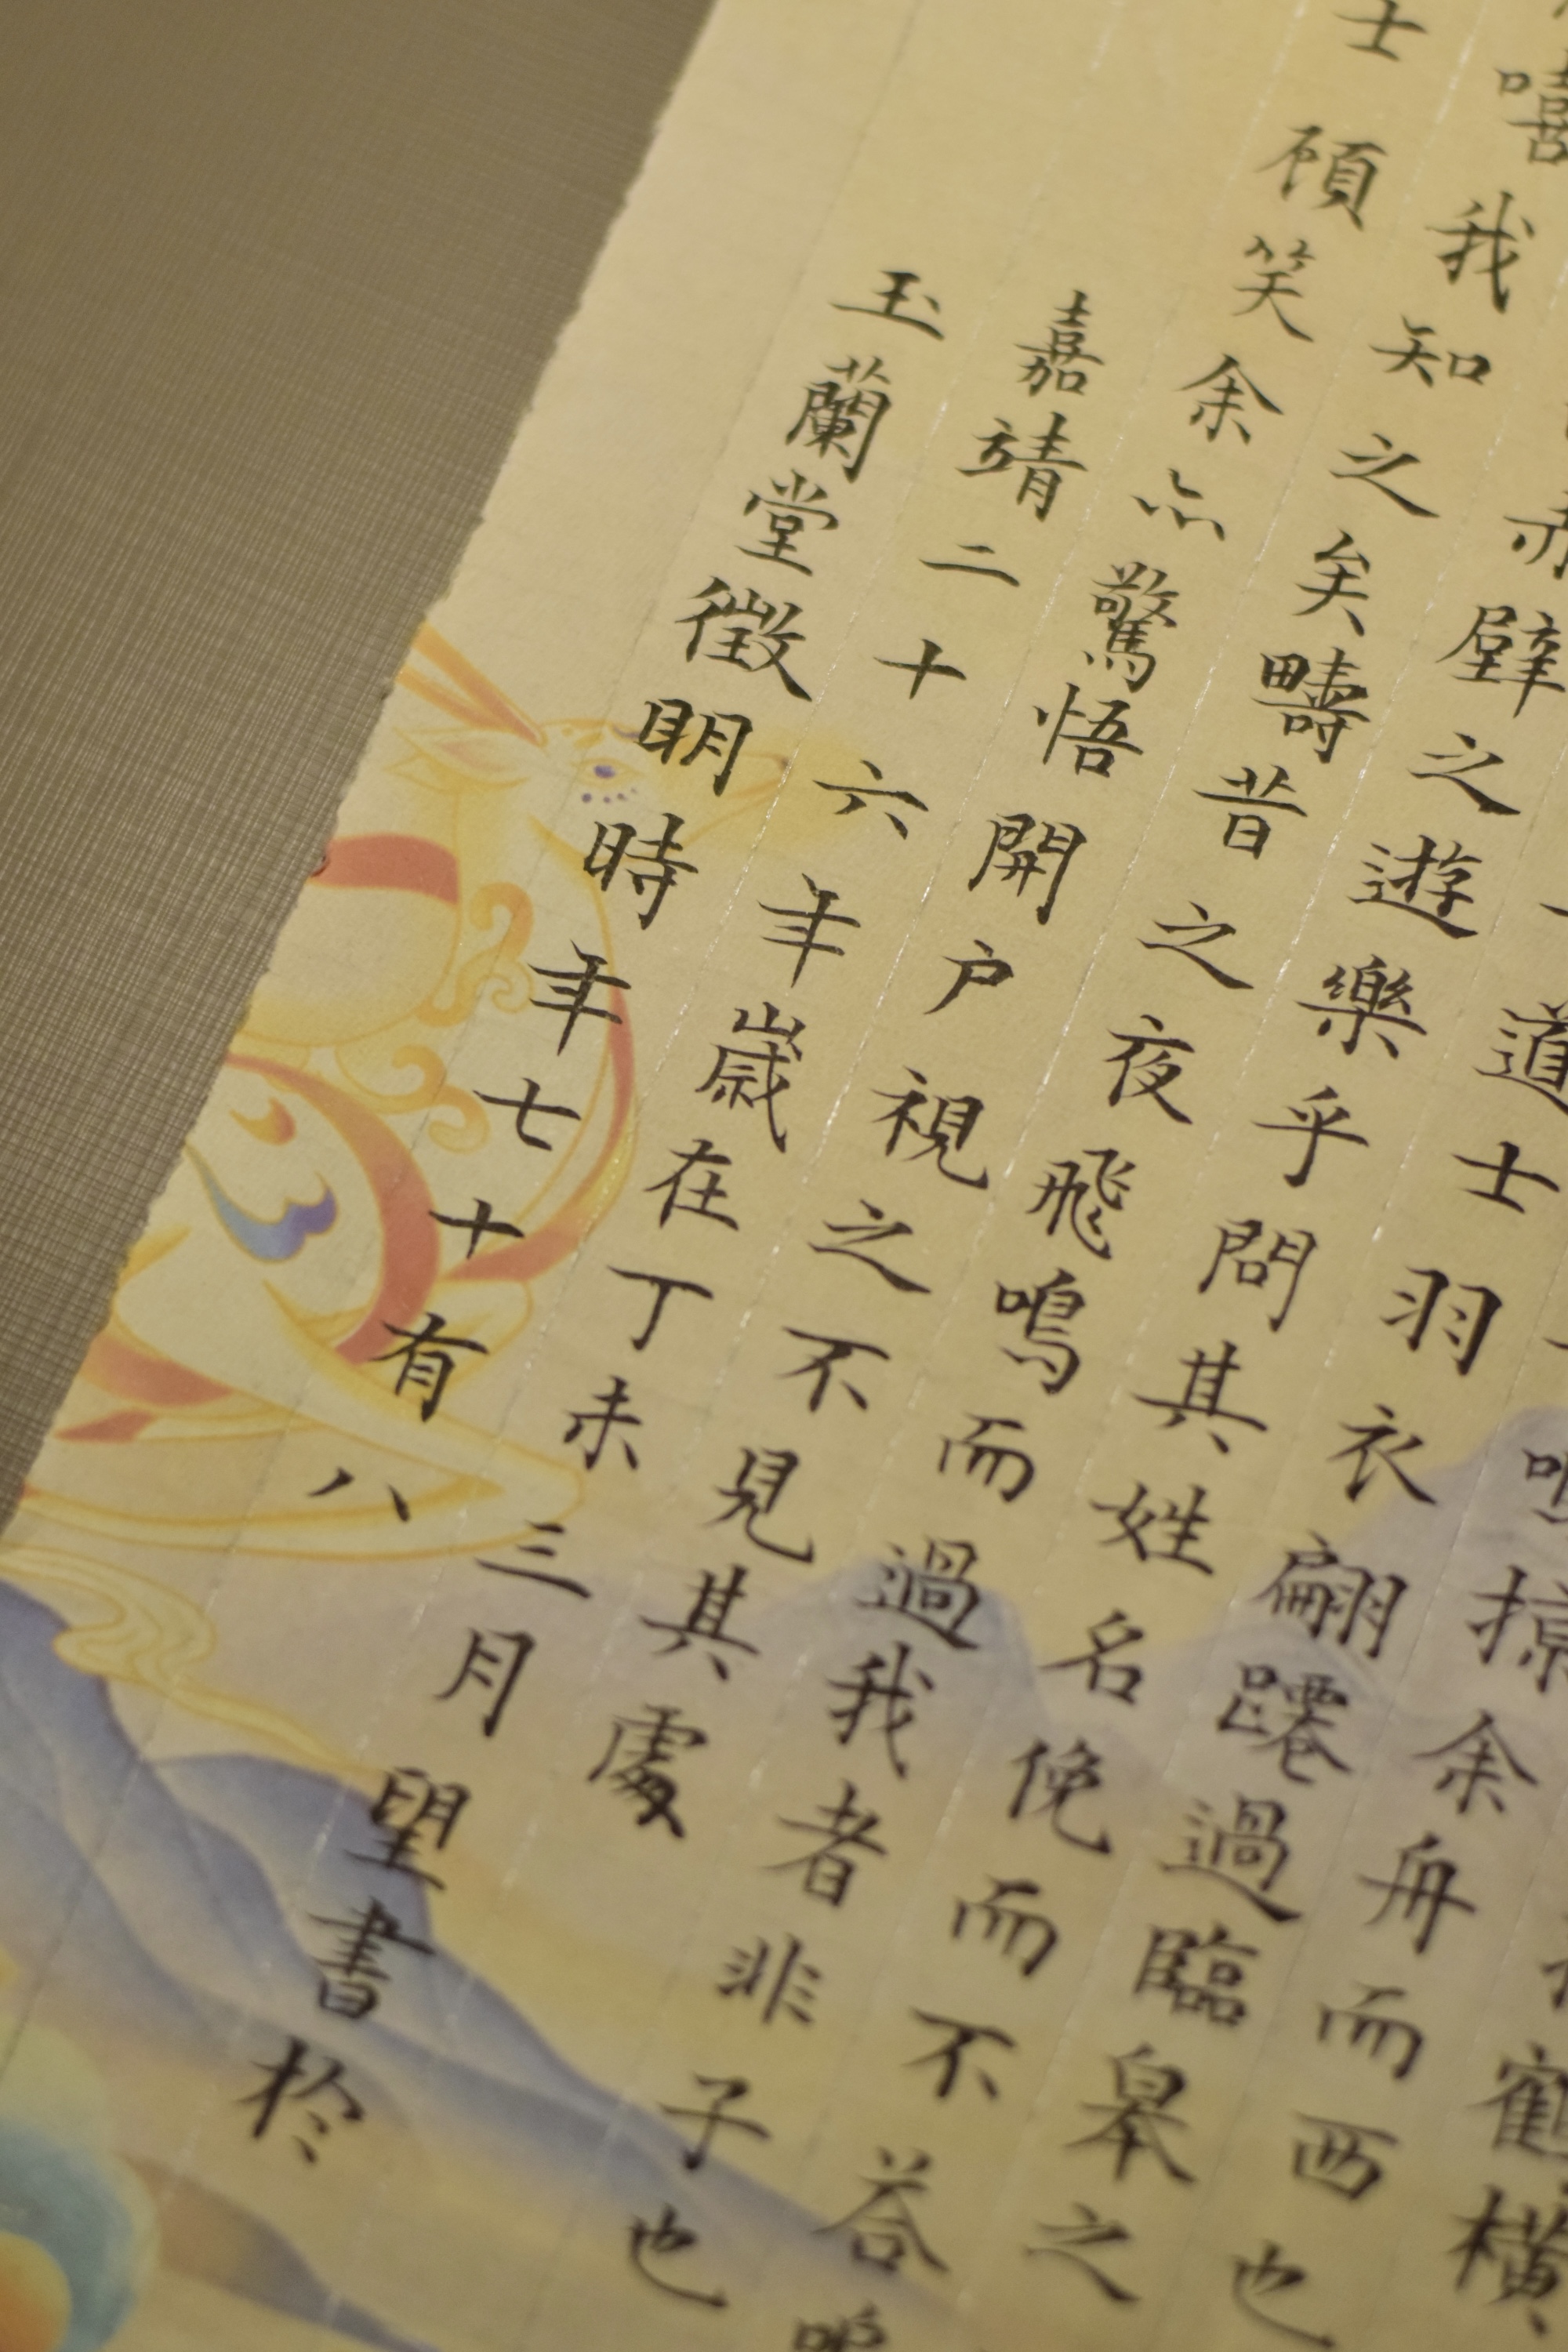 橫
掠余舟而西也
道士羽衣翩躚過臨皋之
赤壁之遊樂乎問其姓名俛而不答嗚
嘻我知之矣疇昔之夜飛鳴而過我者非子也
士顧笑余亦驚悟開户視之不見其處
嘉靖二十六年歲在丁未三月望書於
玉蘭堂徵明時年七十有八